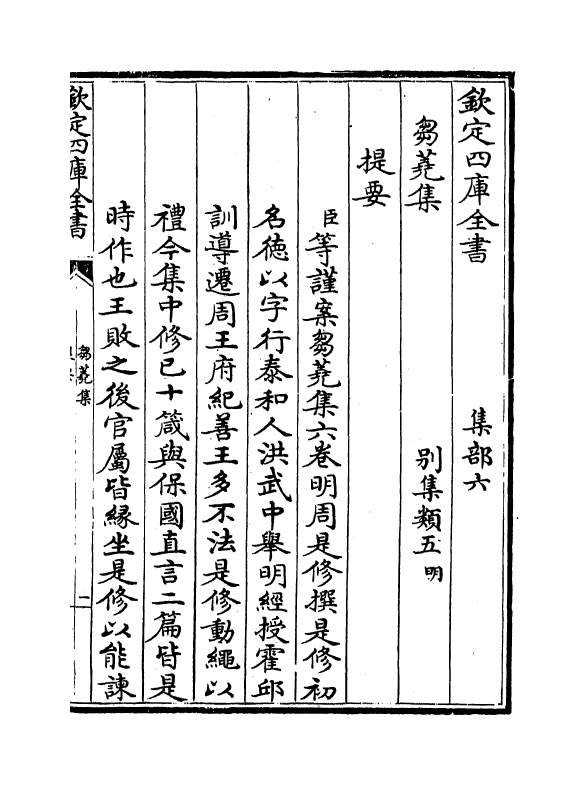 欽定四庫全書　集部六
芻蕘集　别集類五明
提要
臣等謹案芻蕘集六卷明周是修撰是修初
名徳以字行泰和人洪武中舉明經授霍邱
訓導遷周王府紀善王多不法是修動繩以
禮今集中修已十箴與保國直言二篇皆是
時作也王敗之後官屬皆緣坐是修以能諫
欽定四庫全書
芻蕘集
一